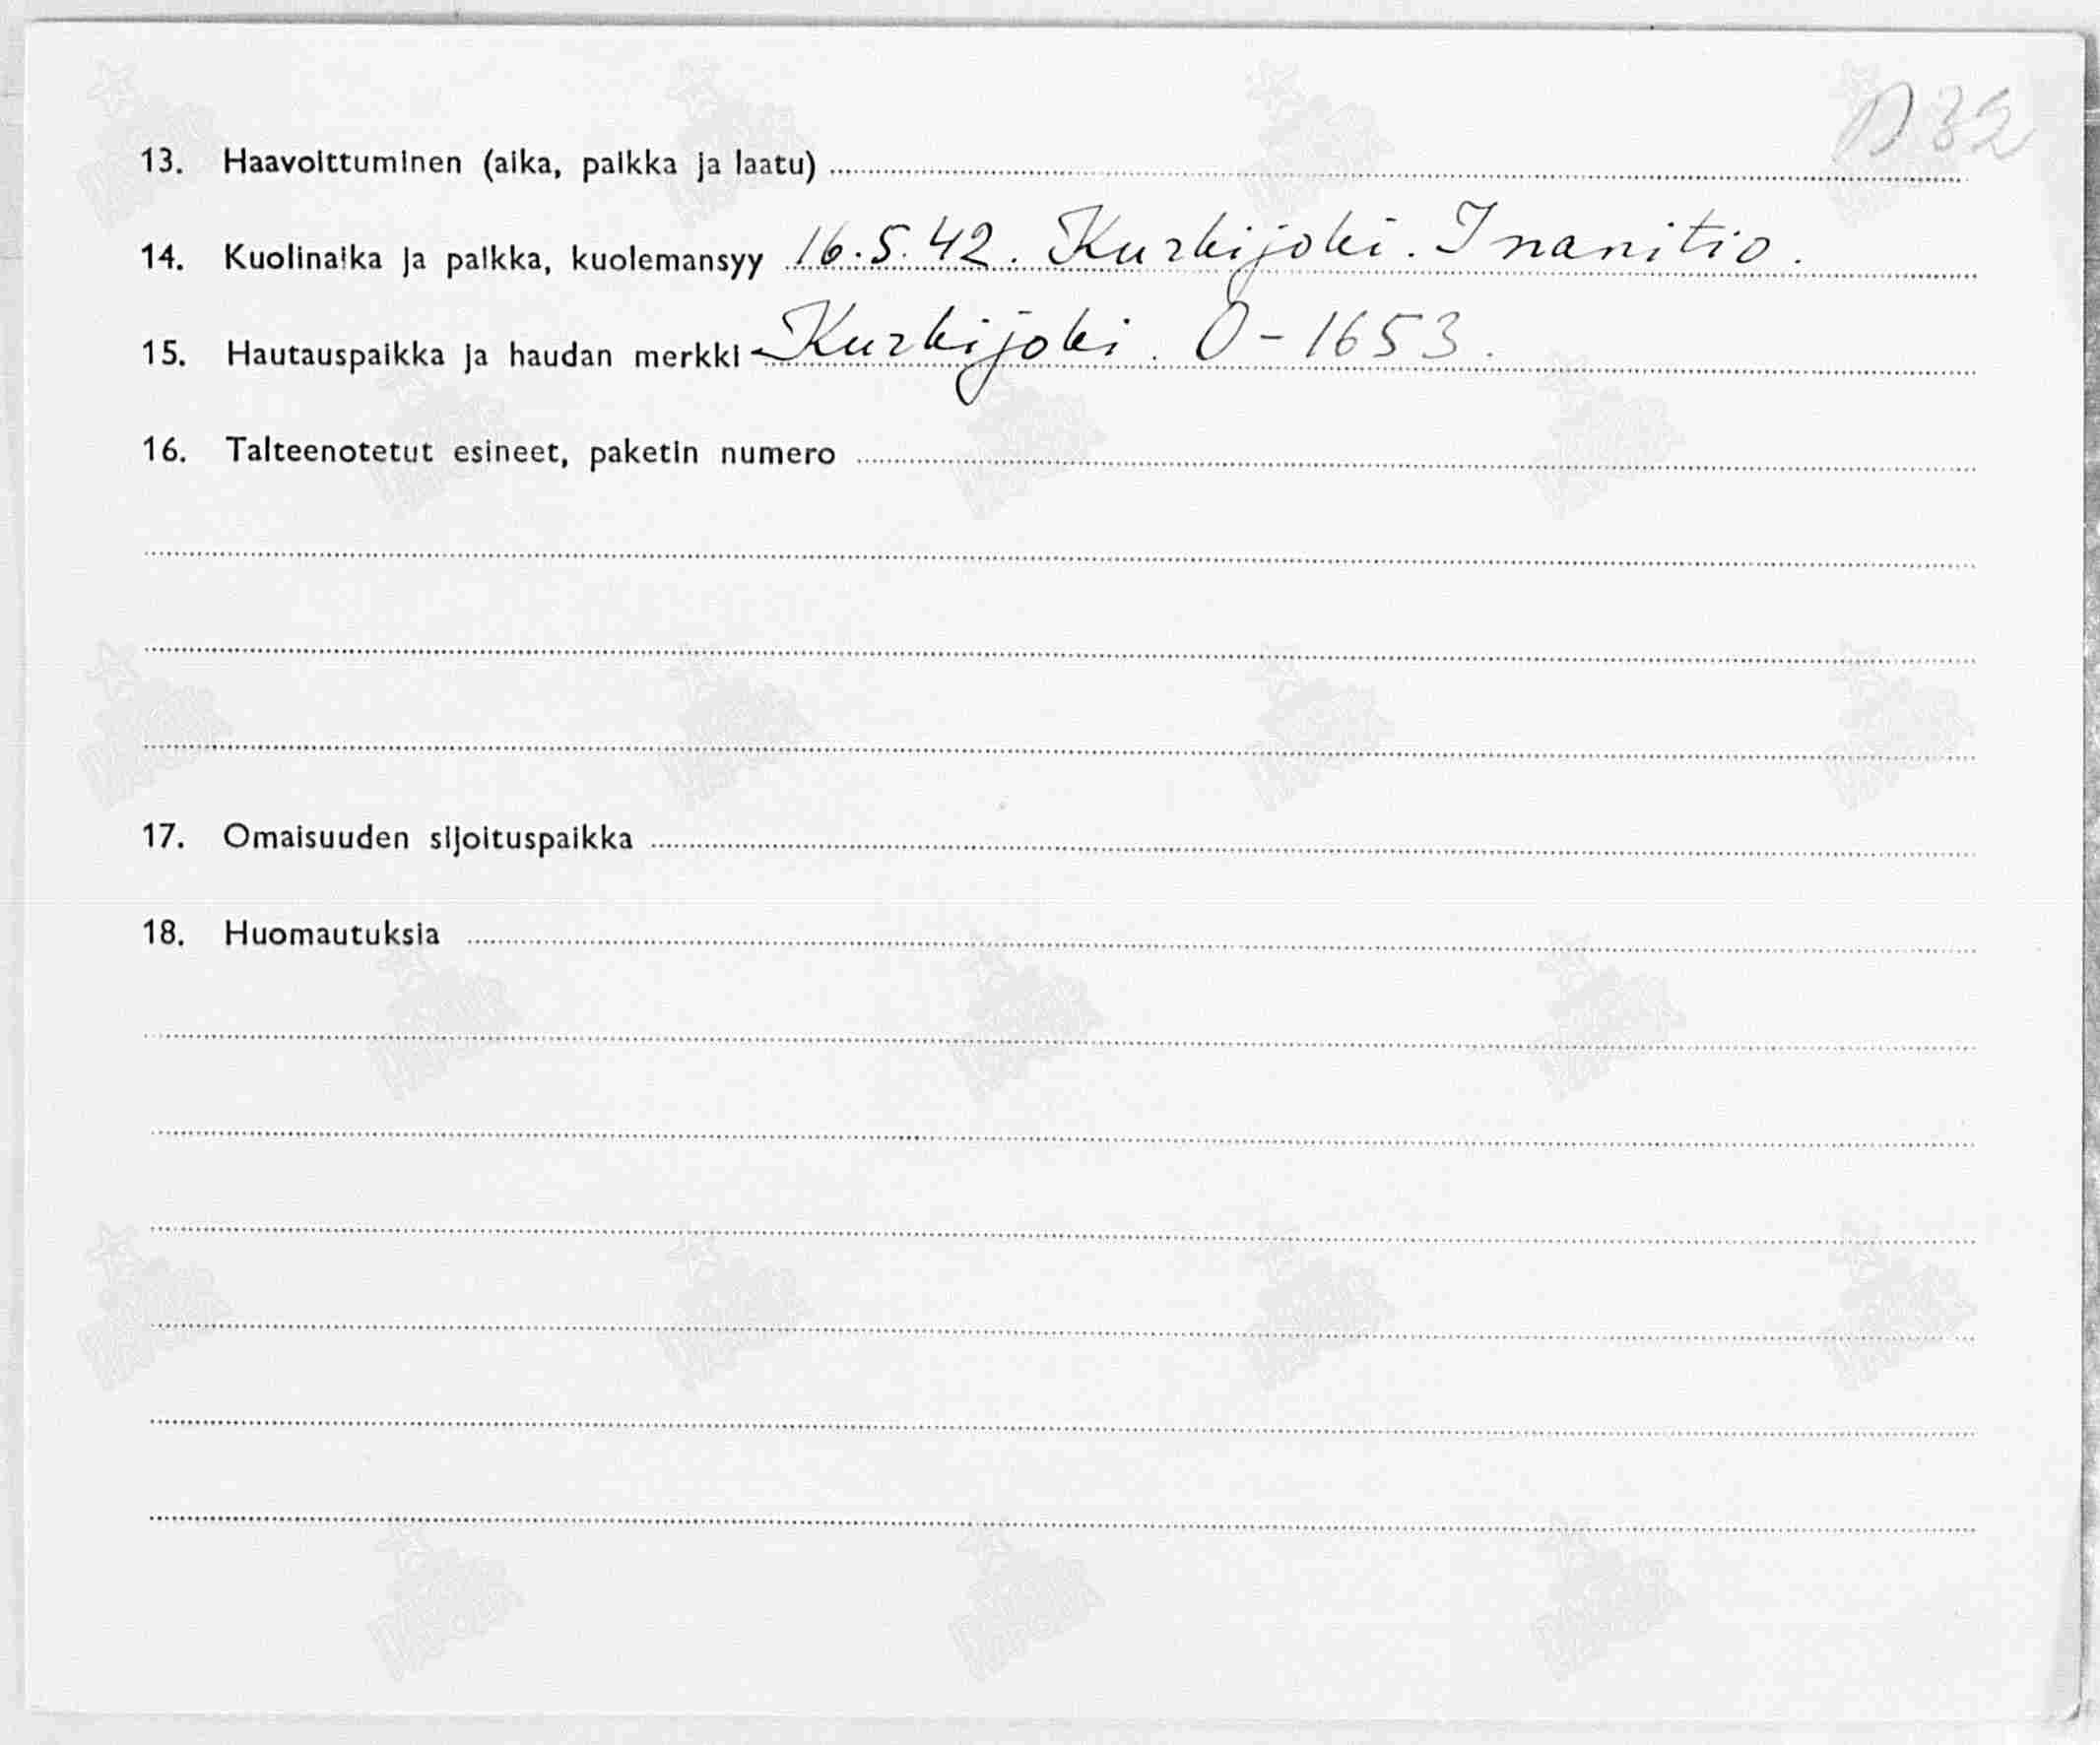 D 32
13. Haavoittuminen (aika, paikka ja laatu)
14. Kuolinaika ja paikka, kuolemansyy 16.5.42. Kurkijoki. Inanitio.
15. Hautauspaikka ja haudan merkki Kurkijoki. O-1653.
16. Talteenotetut esineet, paketin numero
17. Omaisuuden sijoituspaikka
18. Huomautuksia